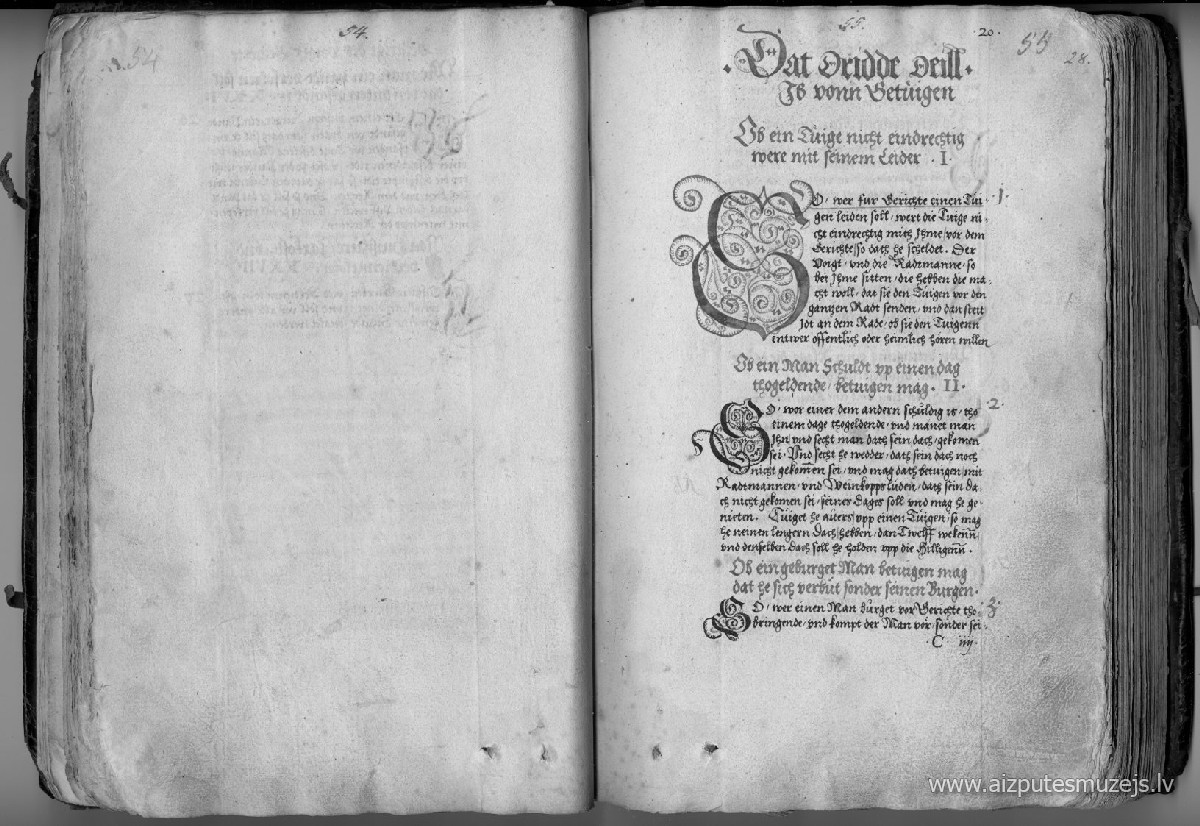 54
54.
55.
20.
55
28.
· Dat Dridde Deill ·
Is vonn Getuigen
Ob ein Tuige nicht eindrechtig
were mit seinem Leider · I ·
SO, wer fur Gerichte einen Tui- 1.
gen leiden soll, wert die Tuige ni-
cht eindrechtig mith Ihme, vor dem
Gerichte, so dath he scheldet. Der
Voigt, vnd die Radtmanne, so
bei Ihme sitten, die hebben die ma-
cht woll, dat sie den Tuigen vor den
gantzen Radt senden, vnd dan steit
Idt an dem Rade, ob sie den Tuigenn
intwer offentlich oder heimlich horen willen
Ob ein Man Schuldt vp einen dag
thogeldende, betuigen mag. II.
SO, wor einer dem andern schuldig is, tho 2.
einem dage thogeldende, vnd manet man
Ihn vnd secht man dath sein dach, gekomen
sei, Vnd secht he wedder, dath sein dach noch
nicht gekommen sei, vnd mag dath betuigen mit
Radtmannen, vnd Weinkoppsluden, dath sein da-
ch nicht gekomen sei, seiner Dages soll vnd mag he ge-
nieten. Tuiget he auers vpp einen Tuigen, so mag
he neinen lengern Dach hebben, dan Twelff wekenn
vnd denselben Dach soll he holden vpp die Hilligenn.
Ob ein geburget Man betuigen mag
dat he sich verbut sonder seinen Burgen.
SO, wer einen Man burget vor Gerichte tho 3
bringende, vnd kompt der Man vor, sonder sei-
· C iiij ·
www.aizputesmuzejs.lv